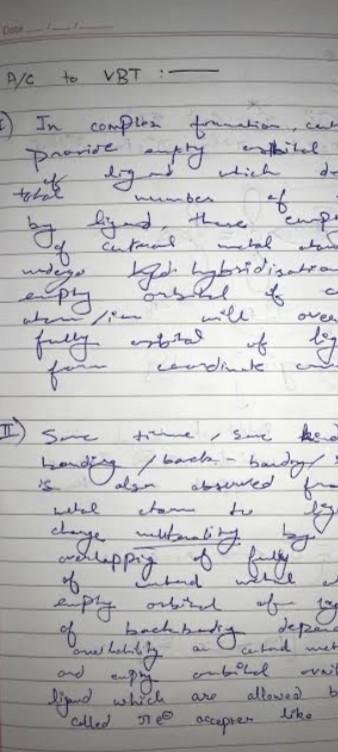 Date ___/___/___
A/C to VBT :—
I) In complex formation, cen
provide empty orbital
of ligand which de
total number of
by ligand, these emp
of central metal atom
undergo hybridisation
empty orbital of c
atom/ion will over
fully orbital of lig
form coordinate
II) Some time, some
bonding / back-bonding /
is also observed from
metal atom to lig
change neutrality by
overlapping of fully
of central metal
empty orbital of lig
of backbonding depend
availability on central met
and empty orbital avail
ligand which are allowed b
called πe⊖ accepter like